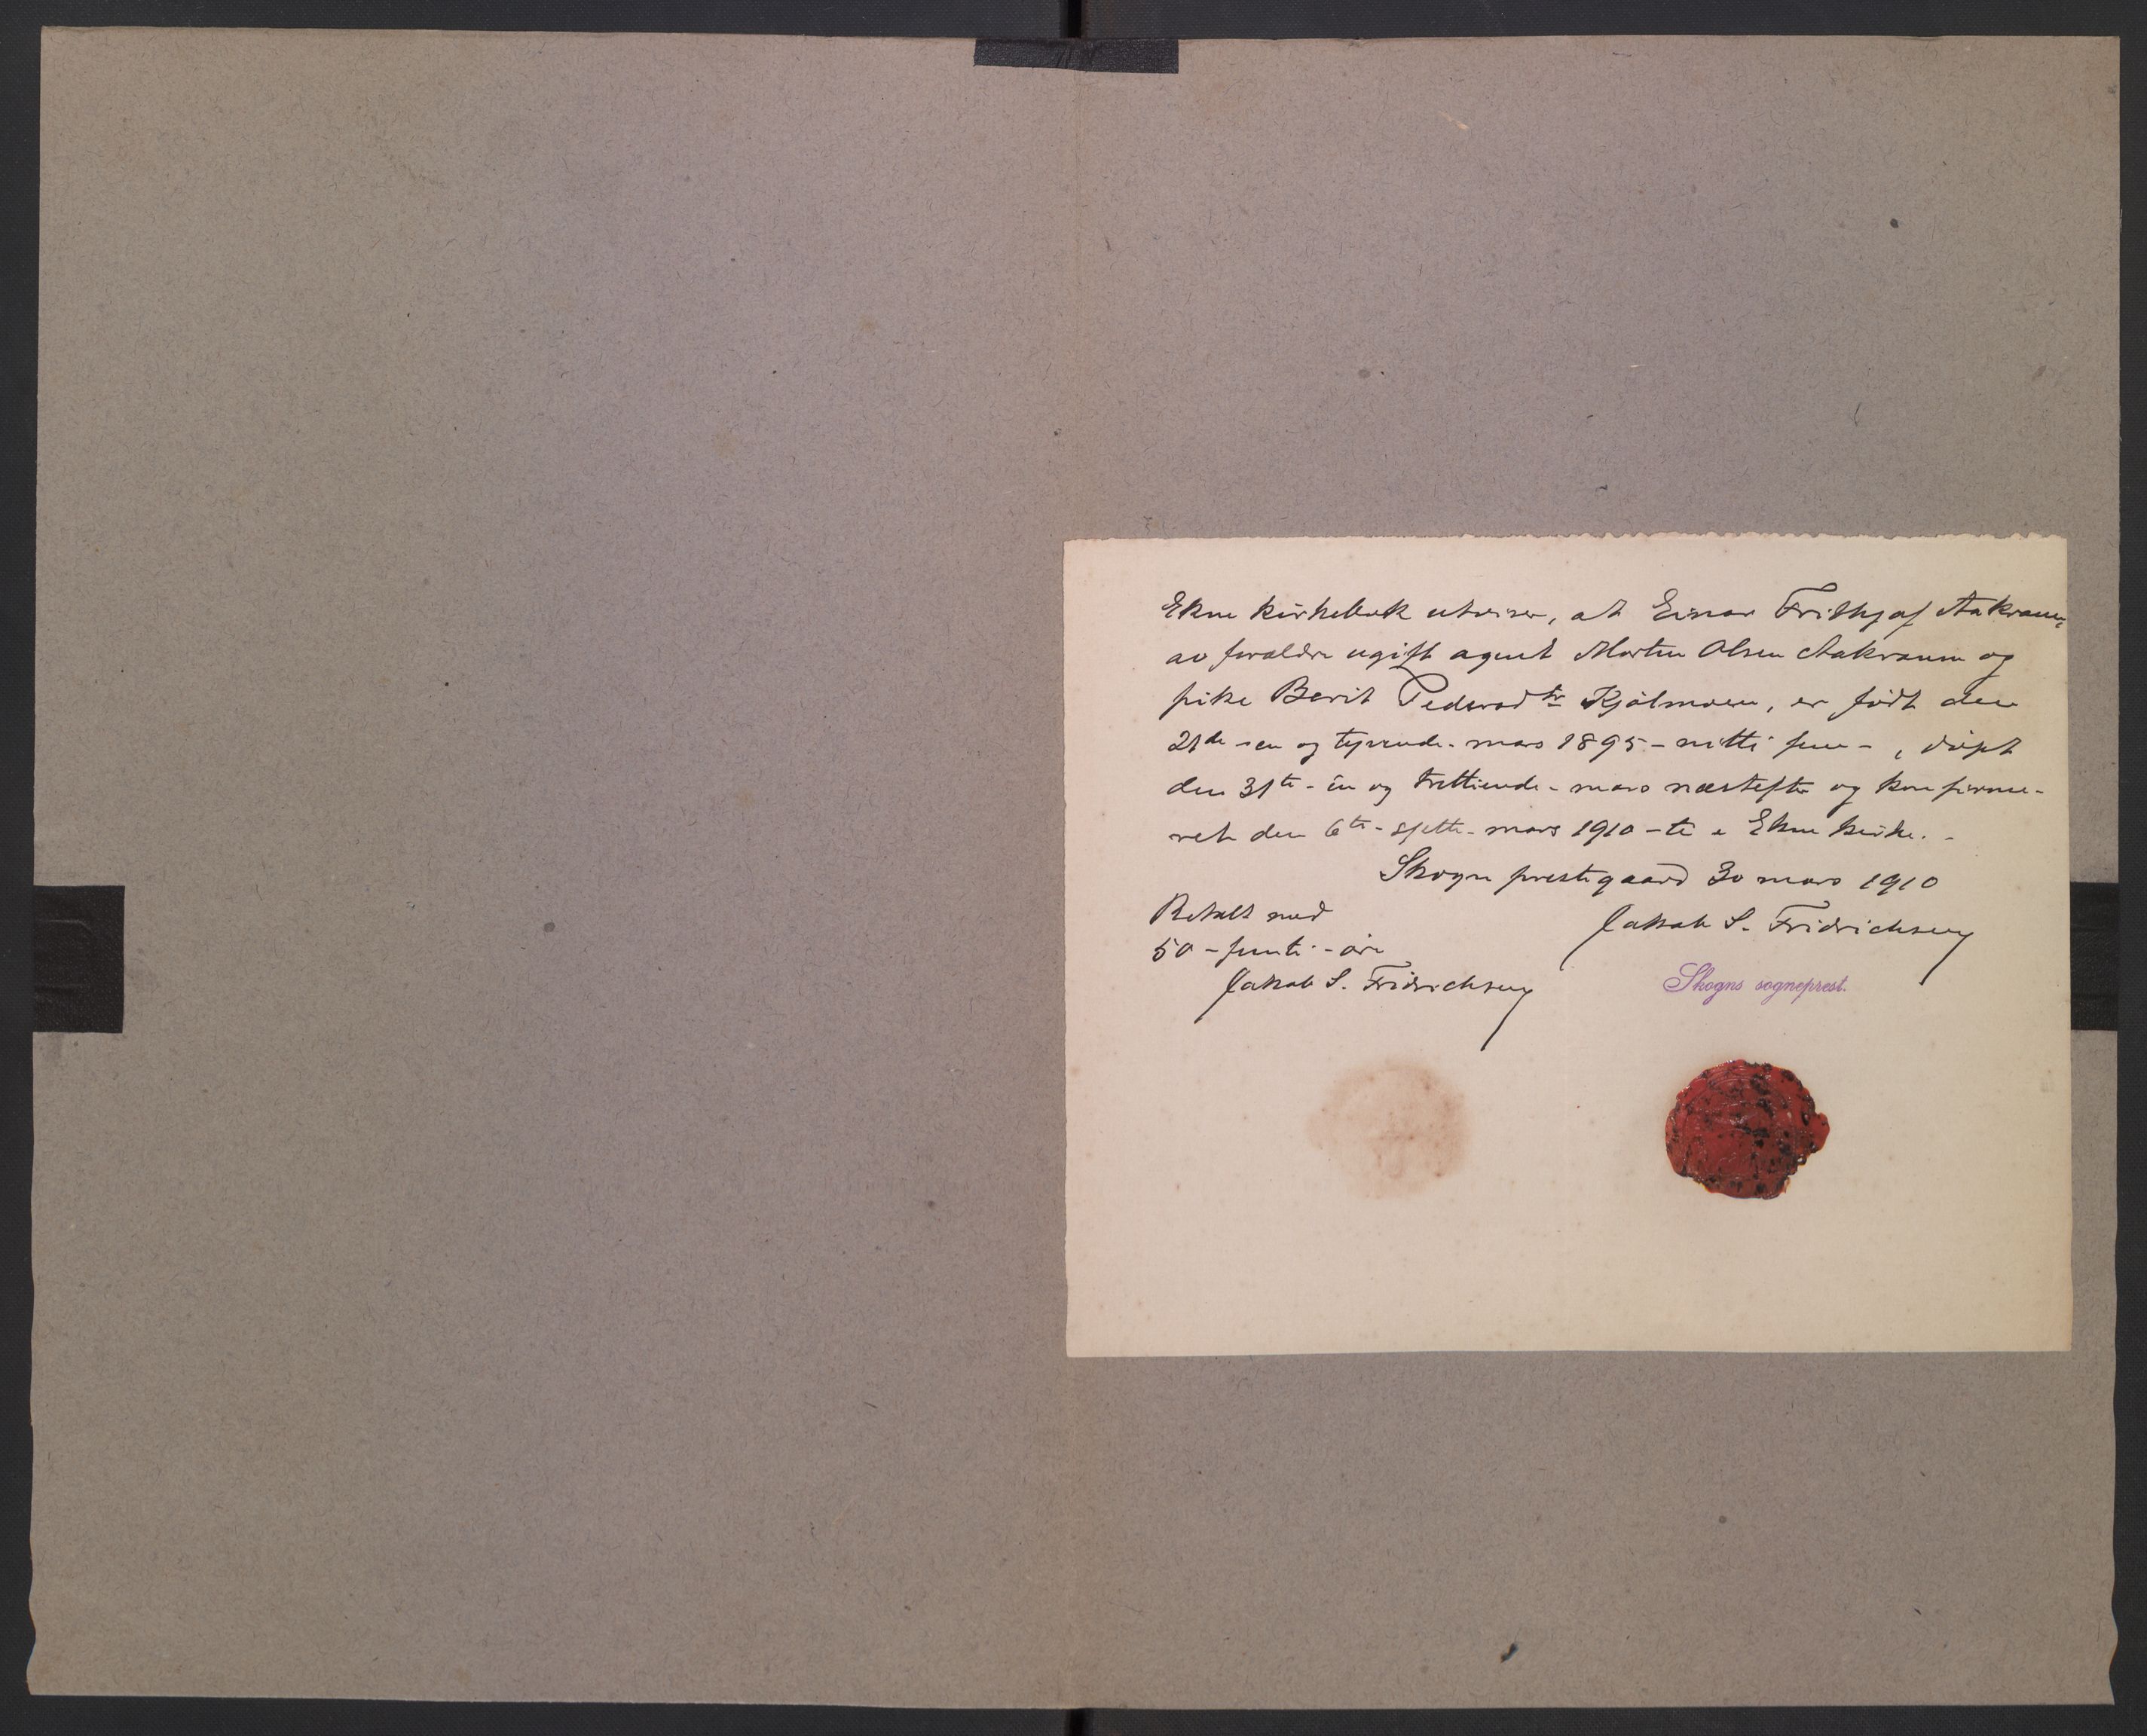 Ekne kirkebok utviser, at Einar Frithjof Aakraun,
av forældre ugift agent Morten Olsen Aakraun og
pike Berit Pedersdtr Kjölmoen, er födt den
21de - en og tyvende - mars 1895 - nitti fem - , döpt
den 31te - en og trettiende - mars næstefter og konfirme-
ret den 6te - sjette - mars 1910 - ti i Ekne kirke. -
Skogn prestegaard 30 mars 1910
Jakob S. Fridrichsen
Skogns sogneprest.
Betalt med
50 - femti - öre
Jakob S. Fridrichsen